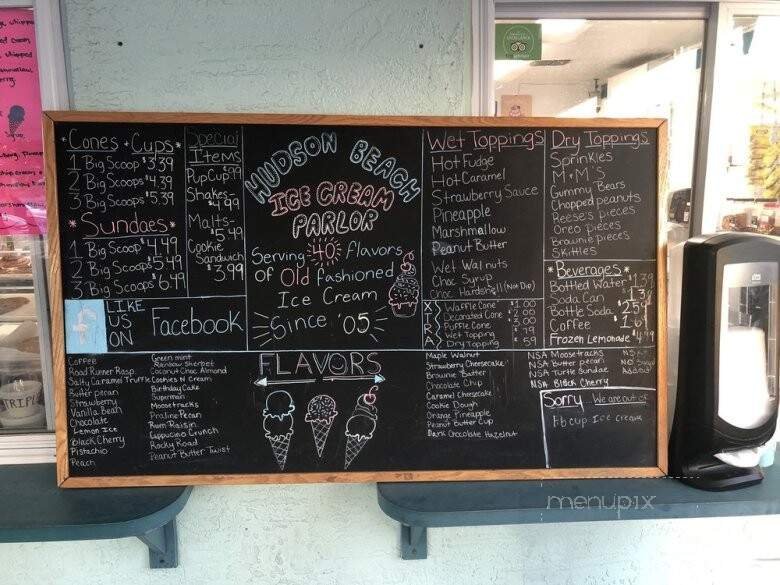 *Cones + Cups*
1 Big Scoop $3.39
2 Big Scoops $4.39
3 Big Scoops $5.39
* Sundaes *
1 Big Scoop $4.49
2 Big Scoops $5.49
3 Big Scoops $6.49
Special
Items
PupCup 99
Shakes-
$4.99
Malts-
$5.49
Cookie
Sandwich
$3.99
HUDSON BEACH
ICE CREAM
PARLOR
Serving 40 flavors
of Old fashioned
Ice Cream
Since '05
Wet Toppings
Hot Fudge
Hot Caramel
Strawberry Sauce
Pineapple
Marshmellow
Peanut Butter
Wet Walnuts
Choc Syrup
Choc Hardshell (Not Dip)
EXTRAS
Waffle Cone $1.00
Decorated Cone $2.00
Puffle Cone $2.00
Wet Topping $.79
Dry Topping $.59
Dry Toppings
Sprinkles
M+M'S
Gummy Bears
Chopped peanuts
Reese's pieces
Oreo pieces
Brownie pieces
Skittles
*Beverages*
Bottled Water
Soda Can
Bottle Soda
Coffee
Frozen Lemonade
f
LIKE
US
ON
Facebook
FLAVORS
Coffee
Road Runner Rasp.
Salty Caramel Truffle
Butter pecan
Strawberry
Vanilla Bean
Chocolate
Lemon Ice
Black Cherry
Pistachio
Peach
Green mint
Rainbow Sherbet
Coconut Choc Almond
Cookies N Cream
Birthday Cake
Superman
Moosetracks
Praline Pecan
Rum Raisin
Cappucino Crunch
Rocky Road
Peanut Butter Twist
Maple Walnut
Strawberry Cheesecake
Brownie Batter
Chocolate Chip
Caramel Cheesecake
Cookie Dough
Orange Pineapple
Peanut Butter Cup
Dark Chocolate Hazelnut
NSA Moosetracks
NSA Butter pecan
NSA Turtle Sundae
NSA Black Cherry
NSA=
No Sugar
Added
Sorry We are out of
Pb cup Ice cream
menupix